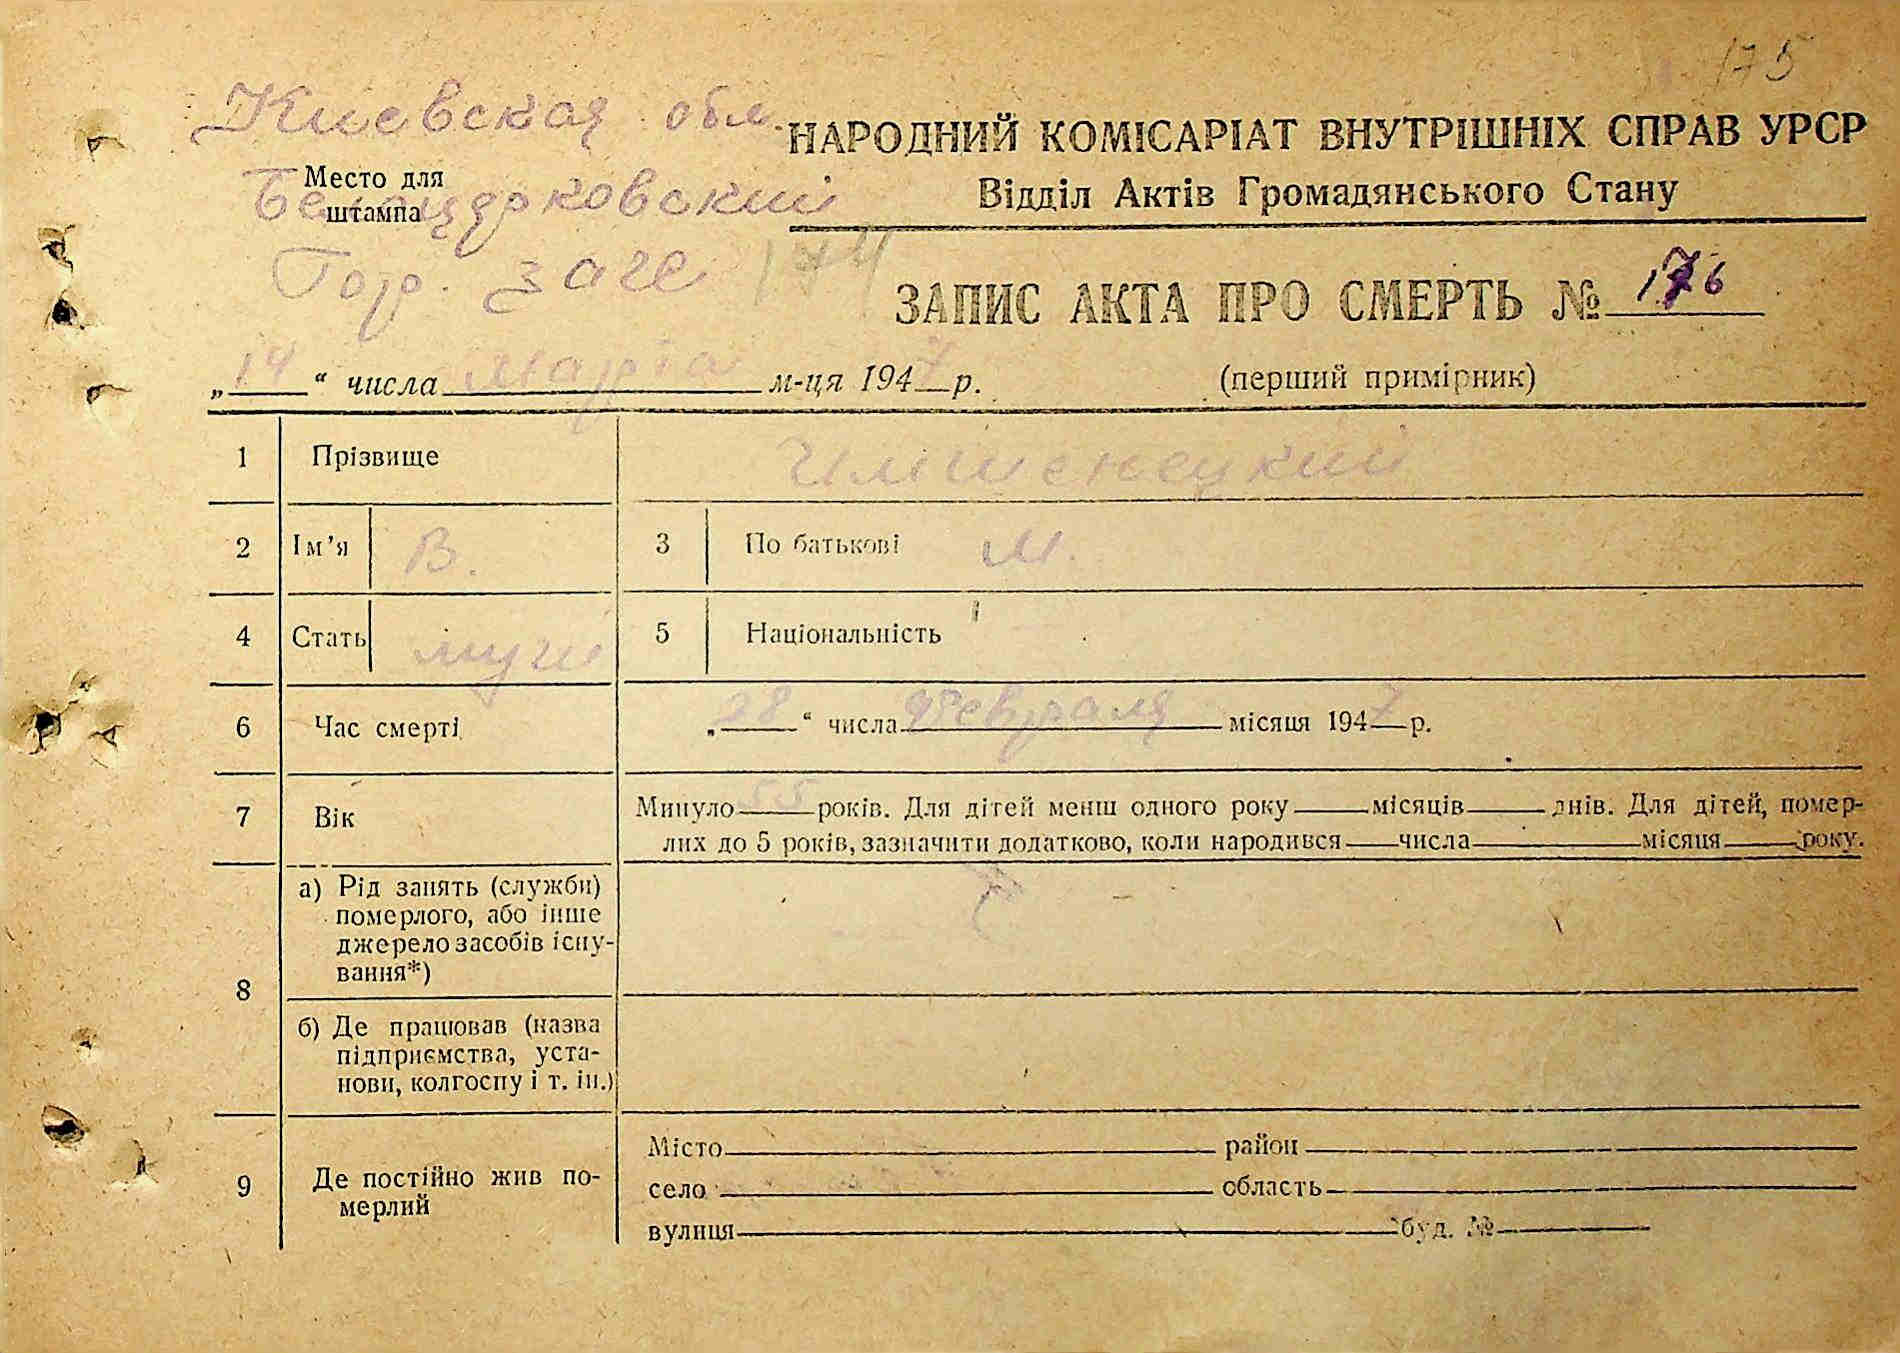 175
Киевская обл.
НАРОДНИЙ КОМІСАРІАТ ВНУТРІШНІХ СПРАВ УРСР
Место для штампа
Белоцерковский
Відділ Актів Громадянського Стану
Гор. загс 174
ЗАПИС АКТА ПРО СМЕРТЬ № 176
„14“ числа марта м-ця 1947 р. (перший примірник)
1 Прізвище Имшенецкий
2 Ім’я В. 3 По батькові М.
4 Стать муж 5 Національність
6 Час смерті „28“ числа февраля місяця 1947 р.
7 Вік Минуло 55 років. Для дітей менш одного року місяців днів. Для дітей, помер-
лих до 5 років, зазначити додатково, коли народився числа місяця року.
8 а) Рід занять (служби)
померлого, або інше
джерело засобів існу-
вання*)
б) Де працював (назва
підприємства, уста-
нови, колгоспу і т. ін.)
9 Де постійно жив по-
мерлий
Місто район
село область
вулиця буд. №